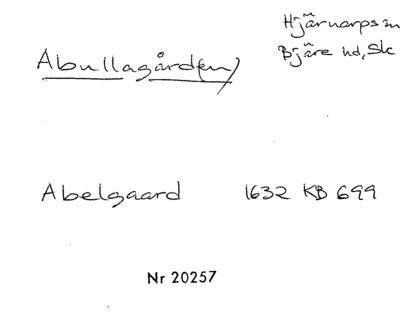 Hjärnarps sn
Bjäre hd, Sk
Abullagård(en)
Abelgaard 1632 KB 699
Nr 20257